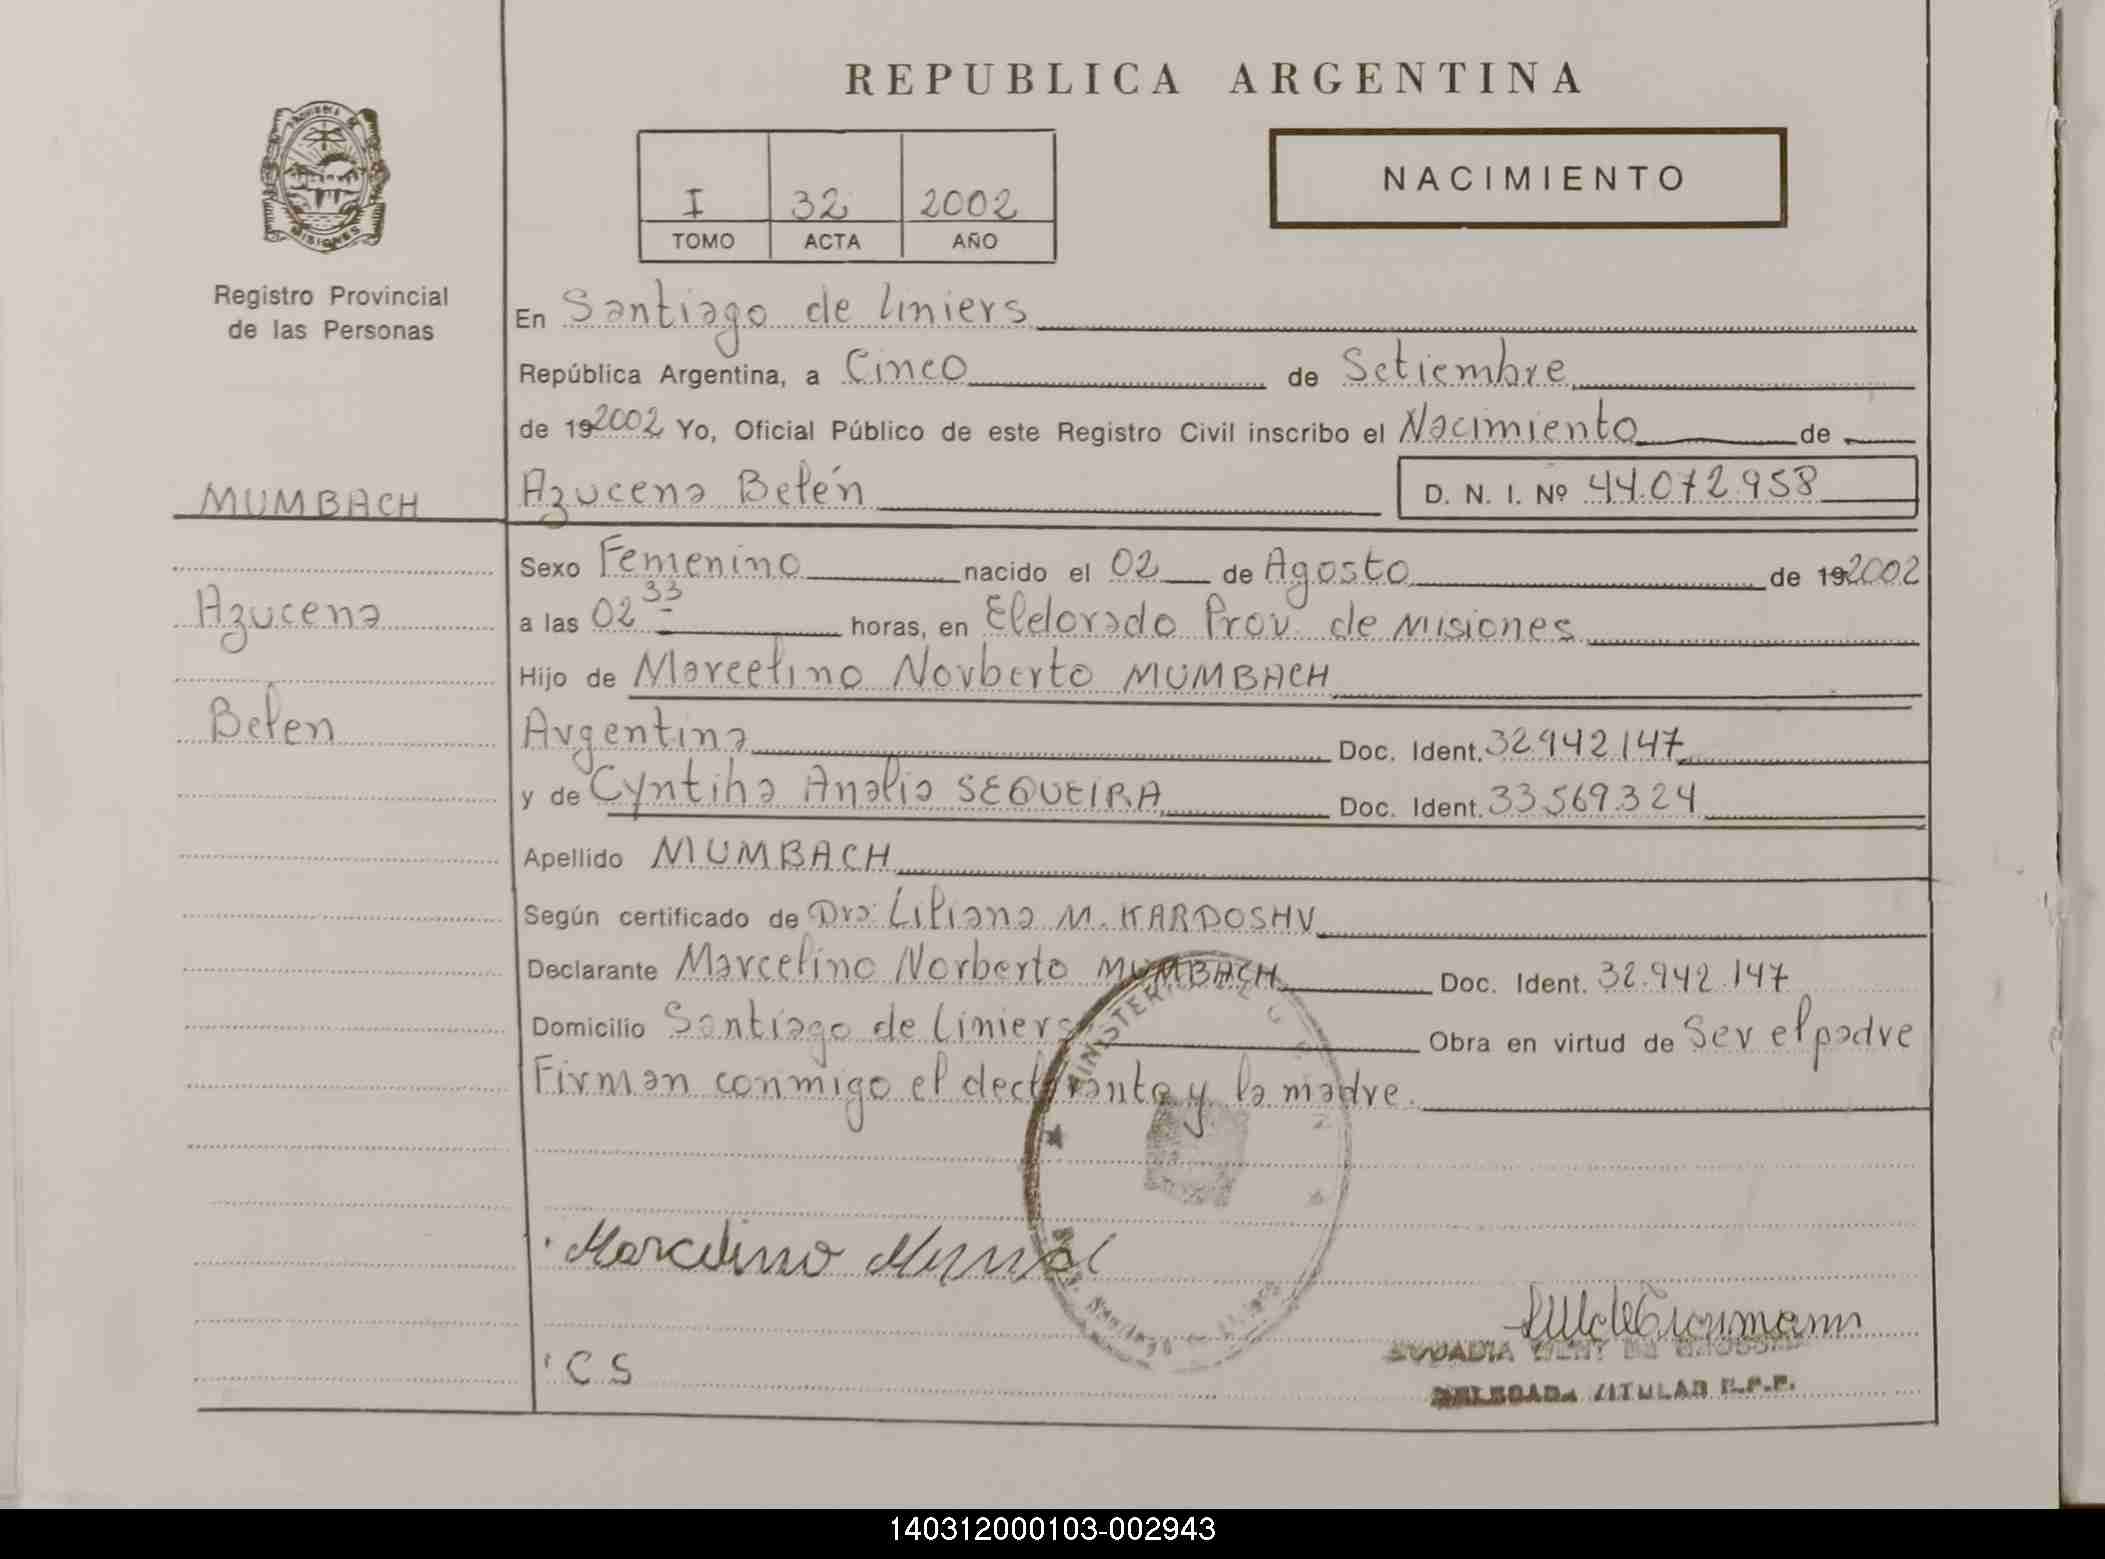 REPUBLICA ARGENTINA
I 32 2002
TOMO ACTA AÑO
NACIMIENTO
PROVINCIA DE
MISIONES
Registro Provincial
de las Personas
En Santiago de Liniers
República Argentina, a Cinco de Setiembre
de 192002 Yo, Oficial Público de este Registro Civil inscribo el Nacimiento de
MUMBACH
Azucena Belén D. N. I. Nº 44.072.958
Sexo Femenino nacido el 02 de Agosto de 192002
Azucena
a las 02 33 horas, en Eldorado Prov. de Misiones
Hijo de Marcelino Norberto MUMBACH
Belen
Argentina Doc. Ident. 32.942.147
y de Cyntiha Analia SEQUEIRA Doc. Ident. 33.569.324
Apellido MUMBACH
Según certificado de Dra: Liliana M. KARDOSHV
Declarante Marcelino Norberto MUMBACH Doc. Ident. 32.942.147
Domicilio Santiago de Liniers Obra en virtud de Ser el padre
Firman conmigo el declarante y la madre.
MINISTER
Marcelino
C S
DELEGADA TITULAR R.P.P.
140312000103-002943